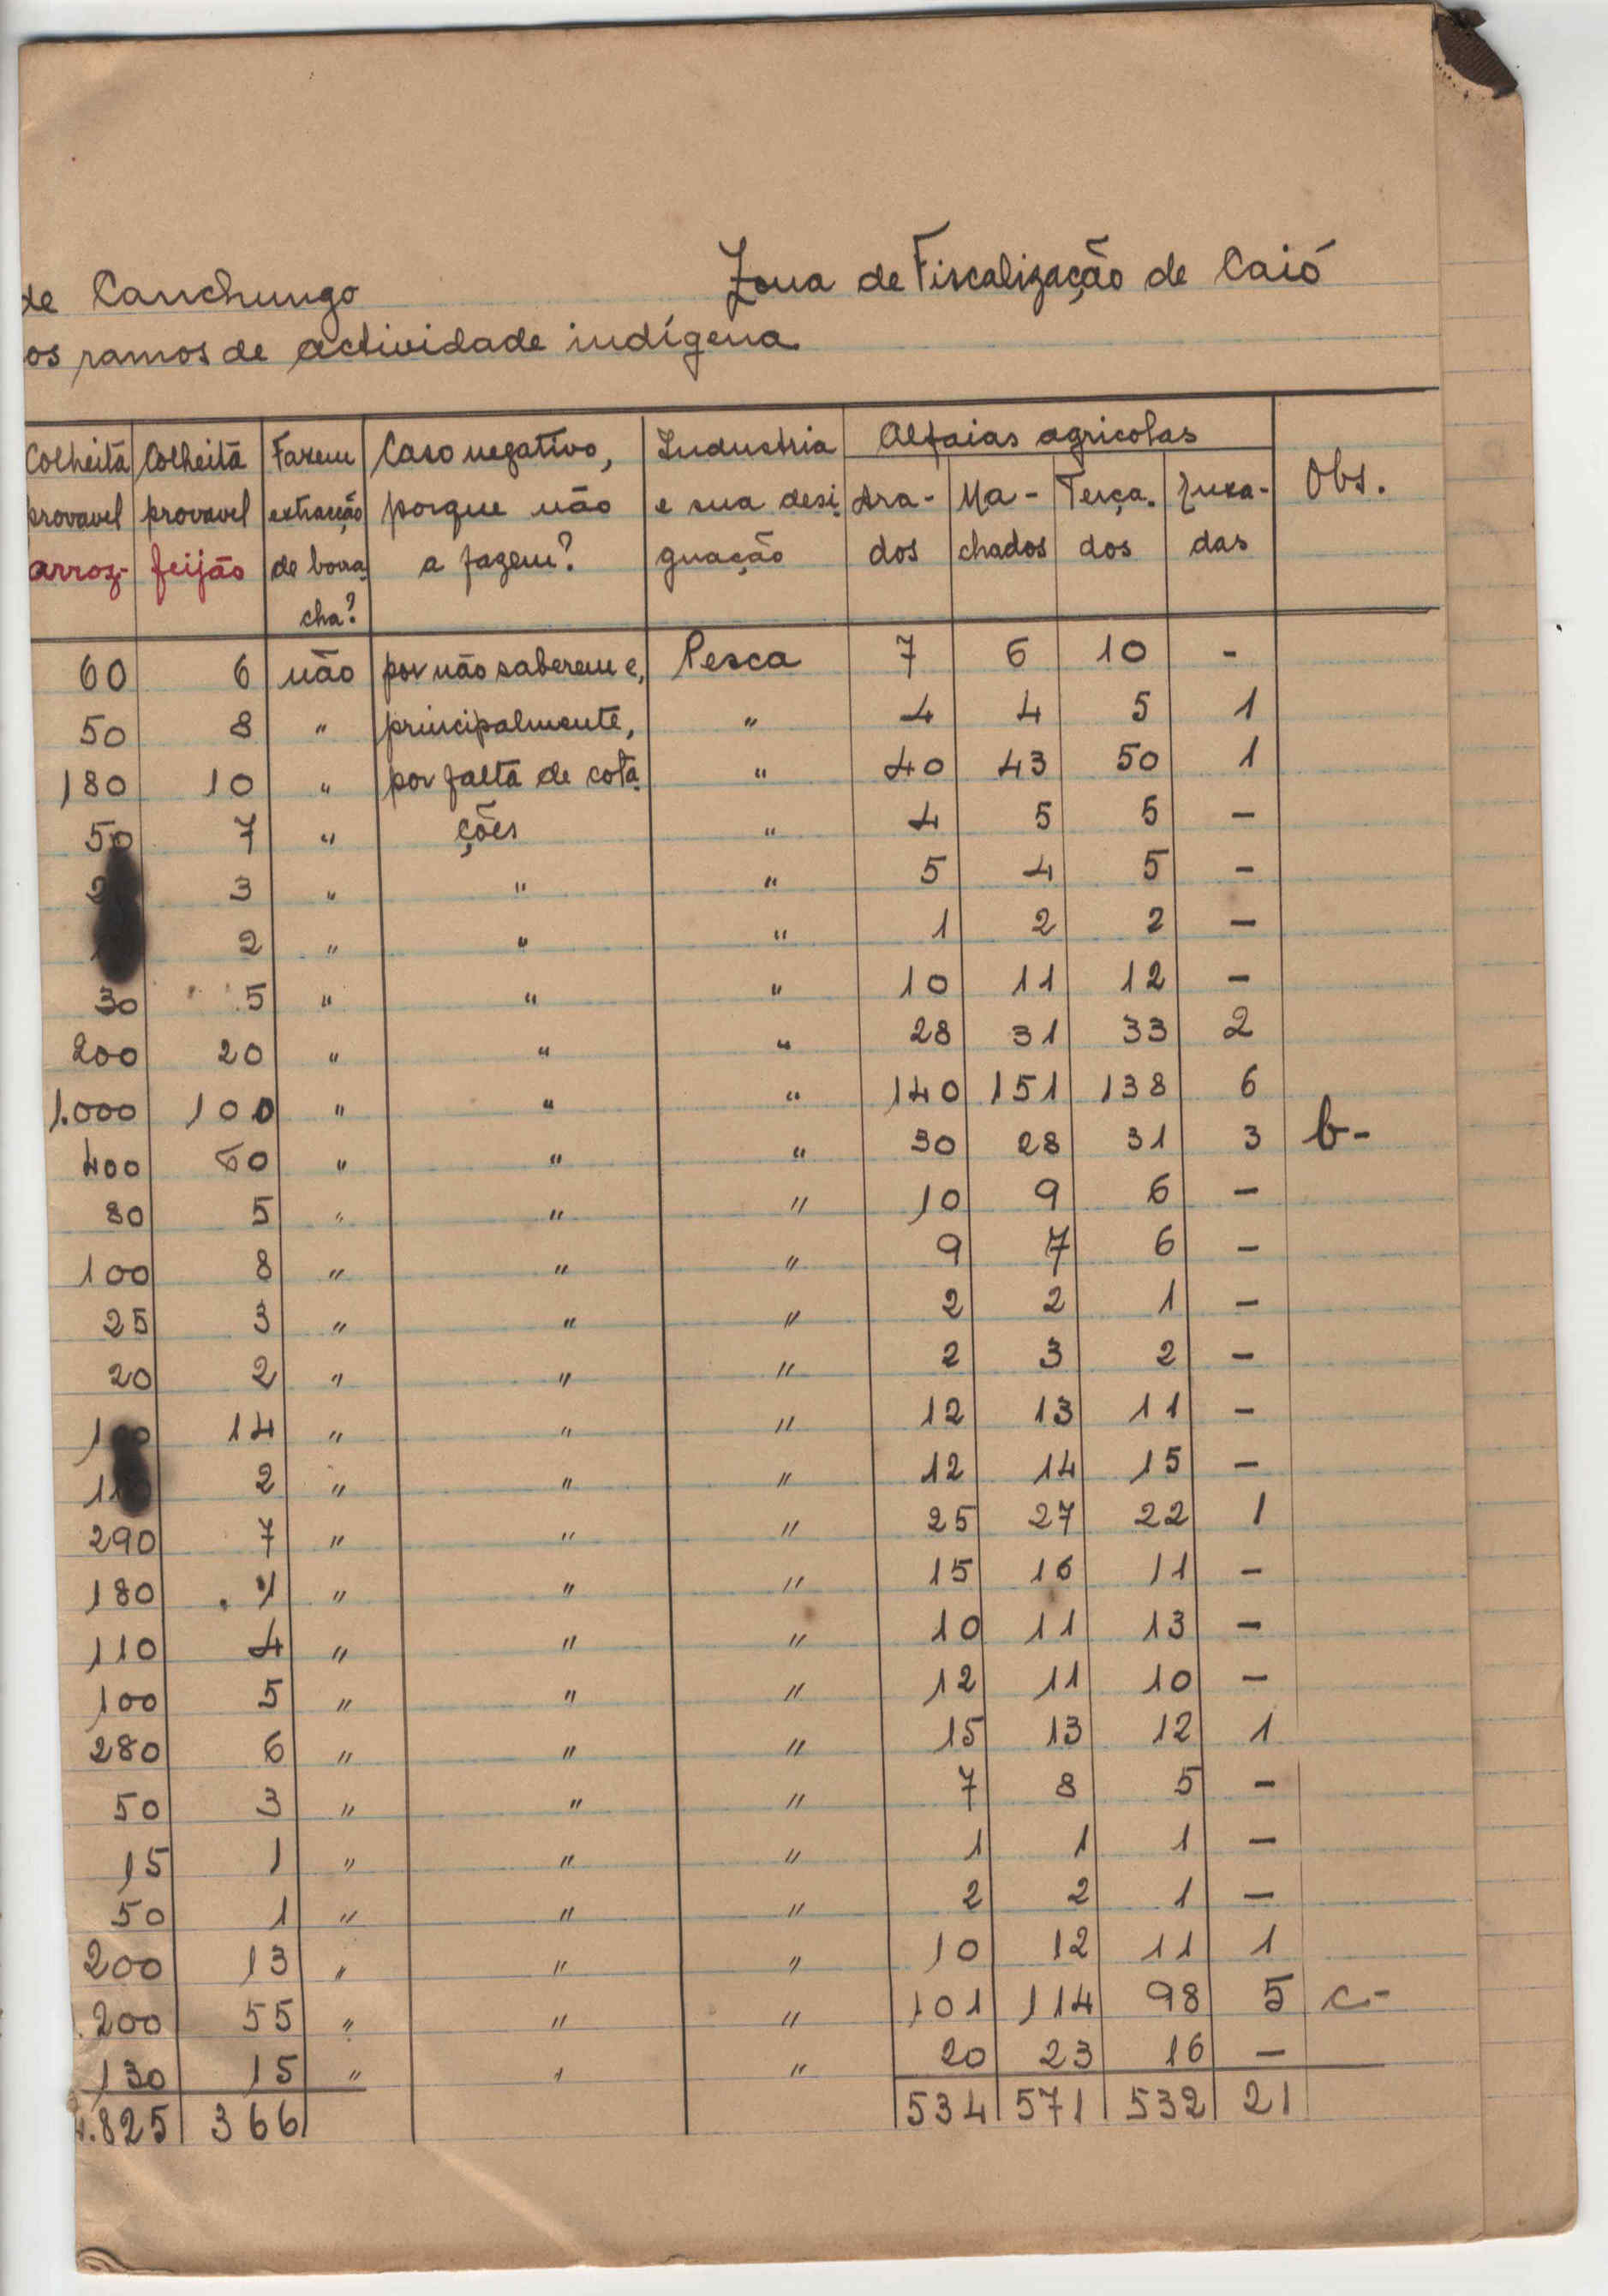 de Canchungo Zona de Fiscalização de Caió
os ramos de actividade indígena
Colheita Colheita Fazem Caso negativo, Industria Alfaias agricolas
provavel provavel extracção porque não e sua desi- Ara- Ma- Terça- Enxa- Obs.
arroz feijão de borra a fazem? gnação dos chados dos das
cha?
60 6 não por não saberem e, Pesca 7 6 10 -
50 8 " principalmente, " 4 4 5 1
180 10 " por falta de cota " 40 43 50 1
50 7 " ções " 4 5 5 -
3 " " " 5 4 5 -
2 " " " 1 2 2 -
30 5 " " " 10 11 12 -
200 20 " " " 28 31 33 2
1.000 100 " " " 140 151 138 6
400 60 " " " 30 28 31 3 b-
80 5 " " " 10 9 6 -
100 8 " " " 9 7 6 -
25 3 " " " 2 2 1 -
20 2 " " " 2 3 2 -
14 " " " 12 13 11 -
2 " " " 12 14 15 -
290 7 " " " 25 27 22 1
180 1 " " " 15 16 11 -
110 4 " " " 10 11 13 -
100 5 " " " 12 11 10 -
280 6 " " " 15 13 12 1
50 3 " " " 7 8 5 -
15 1 " " " 1 1 1 -
50 1 " " " 2 2 1 -
200 13 " " " 10 12 11 1
.200 55 " " " 101 114 98 5 c-
130 15 " " " 20 23 16 -
.825 366 534 571 532 21